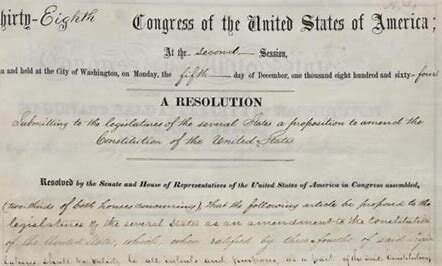 hirty-Eighth Congress of the United States of America;
At the second Session,
n and held at the City of Washington, on Monday, the fifth day of December, one thousand eight hundred and sixty-four
A RESOLUTION
Submitting to the legislatures of the several States a proposition to amend the
Constitution of the United States
Resolved by the Senate and House of Representatives of the United States of America in Congress assembled,
(two-thirds of both houses concurring), that the following article be proposed to the
legislatures of the several states as an amendment to the Constitution
of the United States, which, when ratified by three-fourths of said Legis-
latures shall be valid, to all intents and purposes, as a part of the said Constitution,